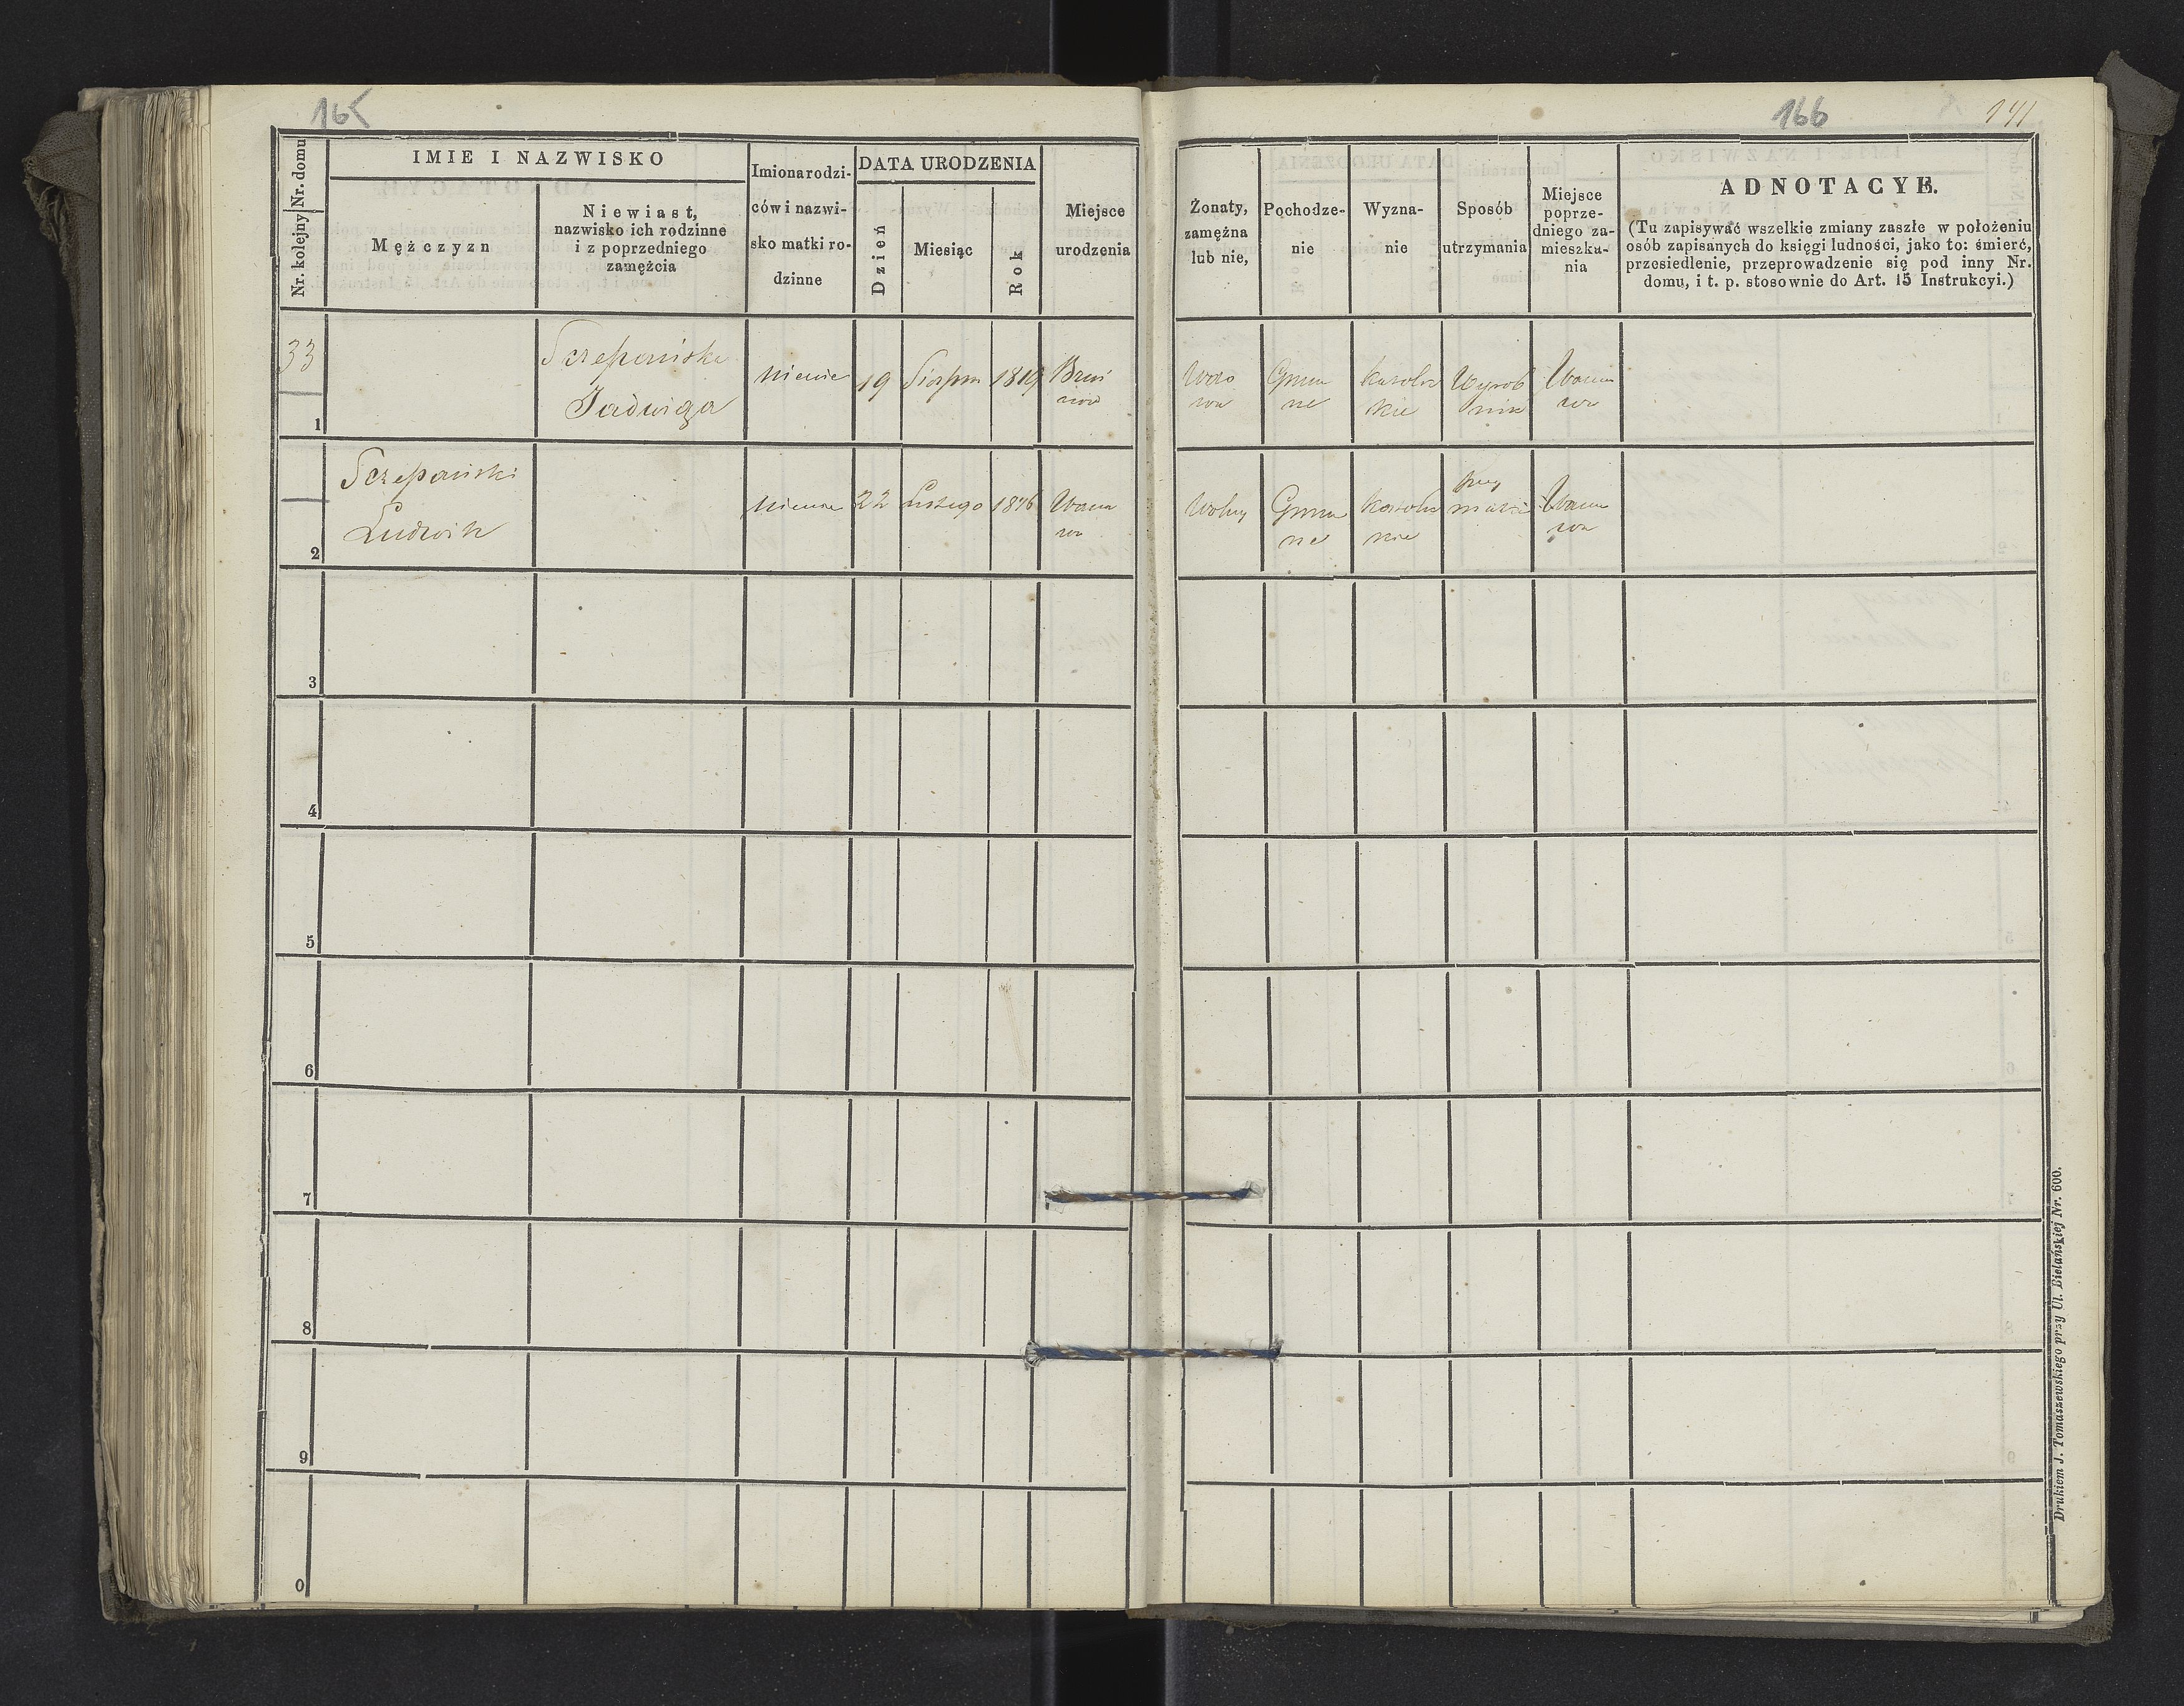 165
166
141
Nr. kolejny Nr. domu
IMIE I NAZWISKO
Mężczyzn
Niewiast,
nazwisko ich rodzinne
i z poprzedniego
zamęźcia
Imiona rodzi-
ców i nazwi-
sko matki ro-
dzinne
DATA URODZENIA
Dzień
Miesiąc
Rok
Miejsce
urodzenia
Żonaty,
zamężna
lub nie,
Pochodze-
nie
Wyzna-
nie
Sposób
utrzymania
Miejsce
poprze-
dniego za-
mieszka-
nia
ADNOTACYE.
(Tu zapisywać wszelkie zmiany zaszłe w położeniu
osób zapisanych do księgi ludności, jako to: śmierć,
przesiedlenie, przeprowadzenie się pod inny Nr.
domu, i t. p. stosownie do Art. 15 Instrukcyi.)
33
1
Szczepańska
Jadwiga
19
Sierpm
1819
Gmin
ne
Katolic
kie
Wyrob
nik
2
Szczepański
Ludwik
22
Lutego
1846
Wolny
Gmin
ne
Katolic
kie
przy
matce
3
4
5
6
7
8
9
0
Drukiem J. Tomaszewskiego przy Ul. Bielańskiej Nr. 600.